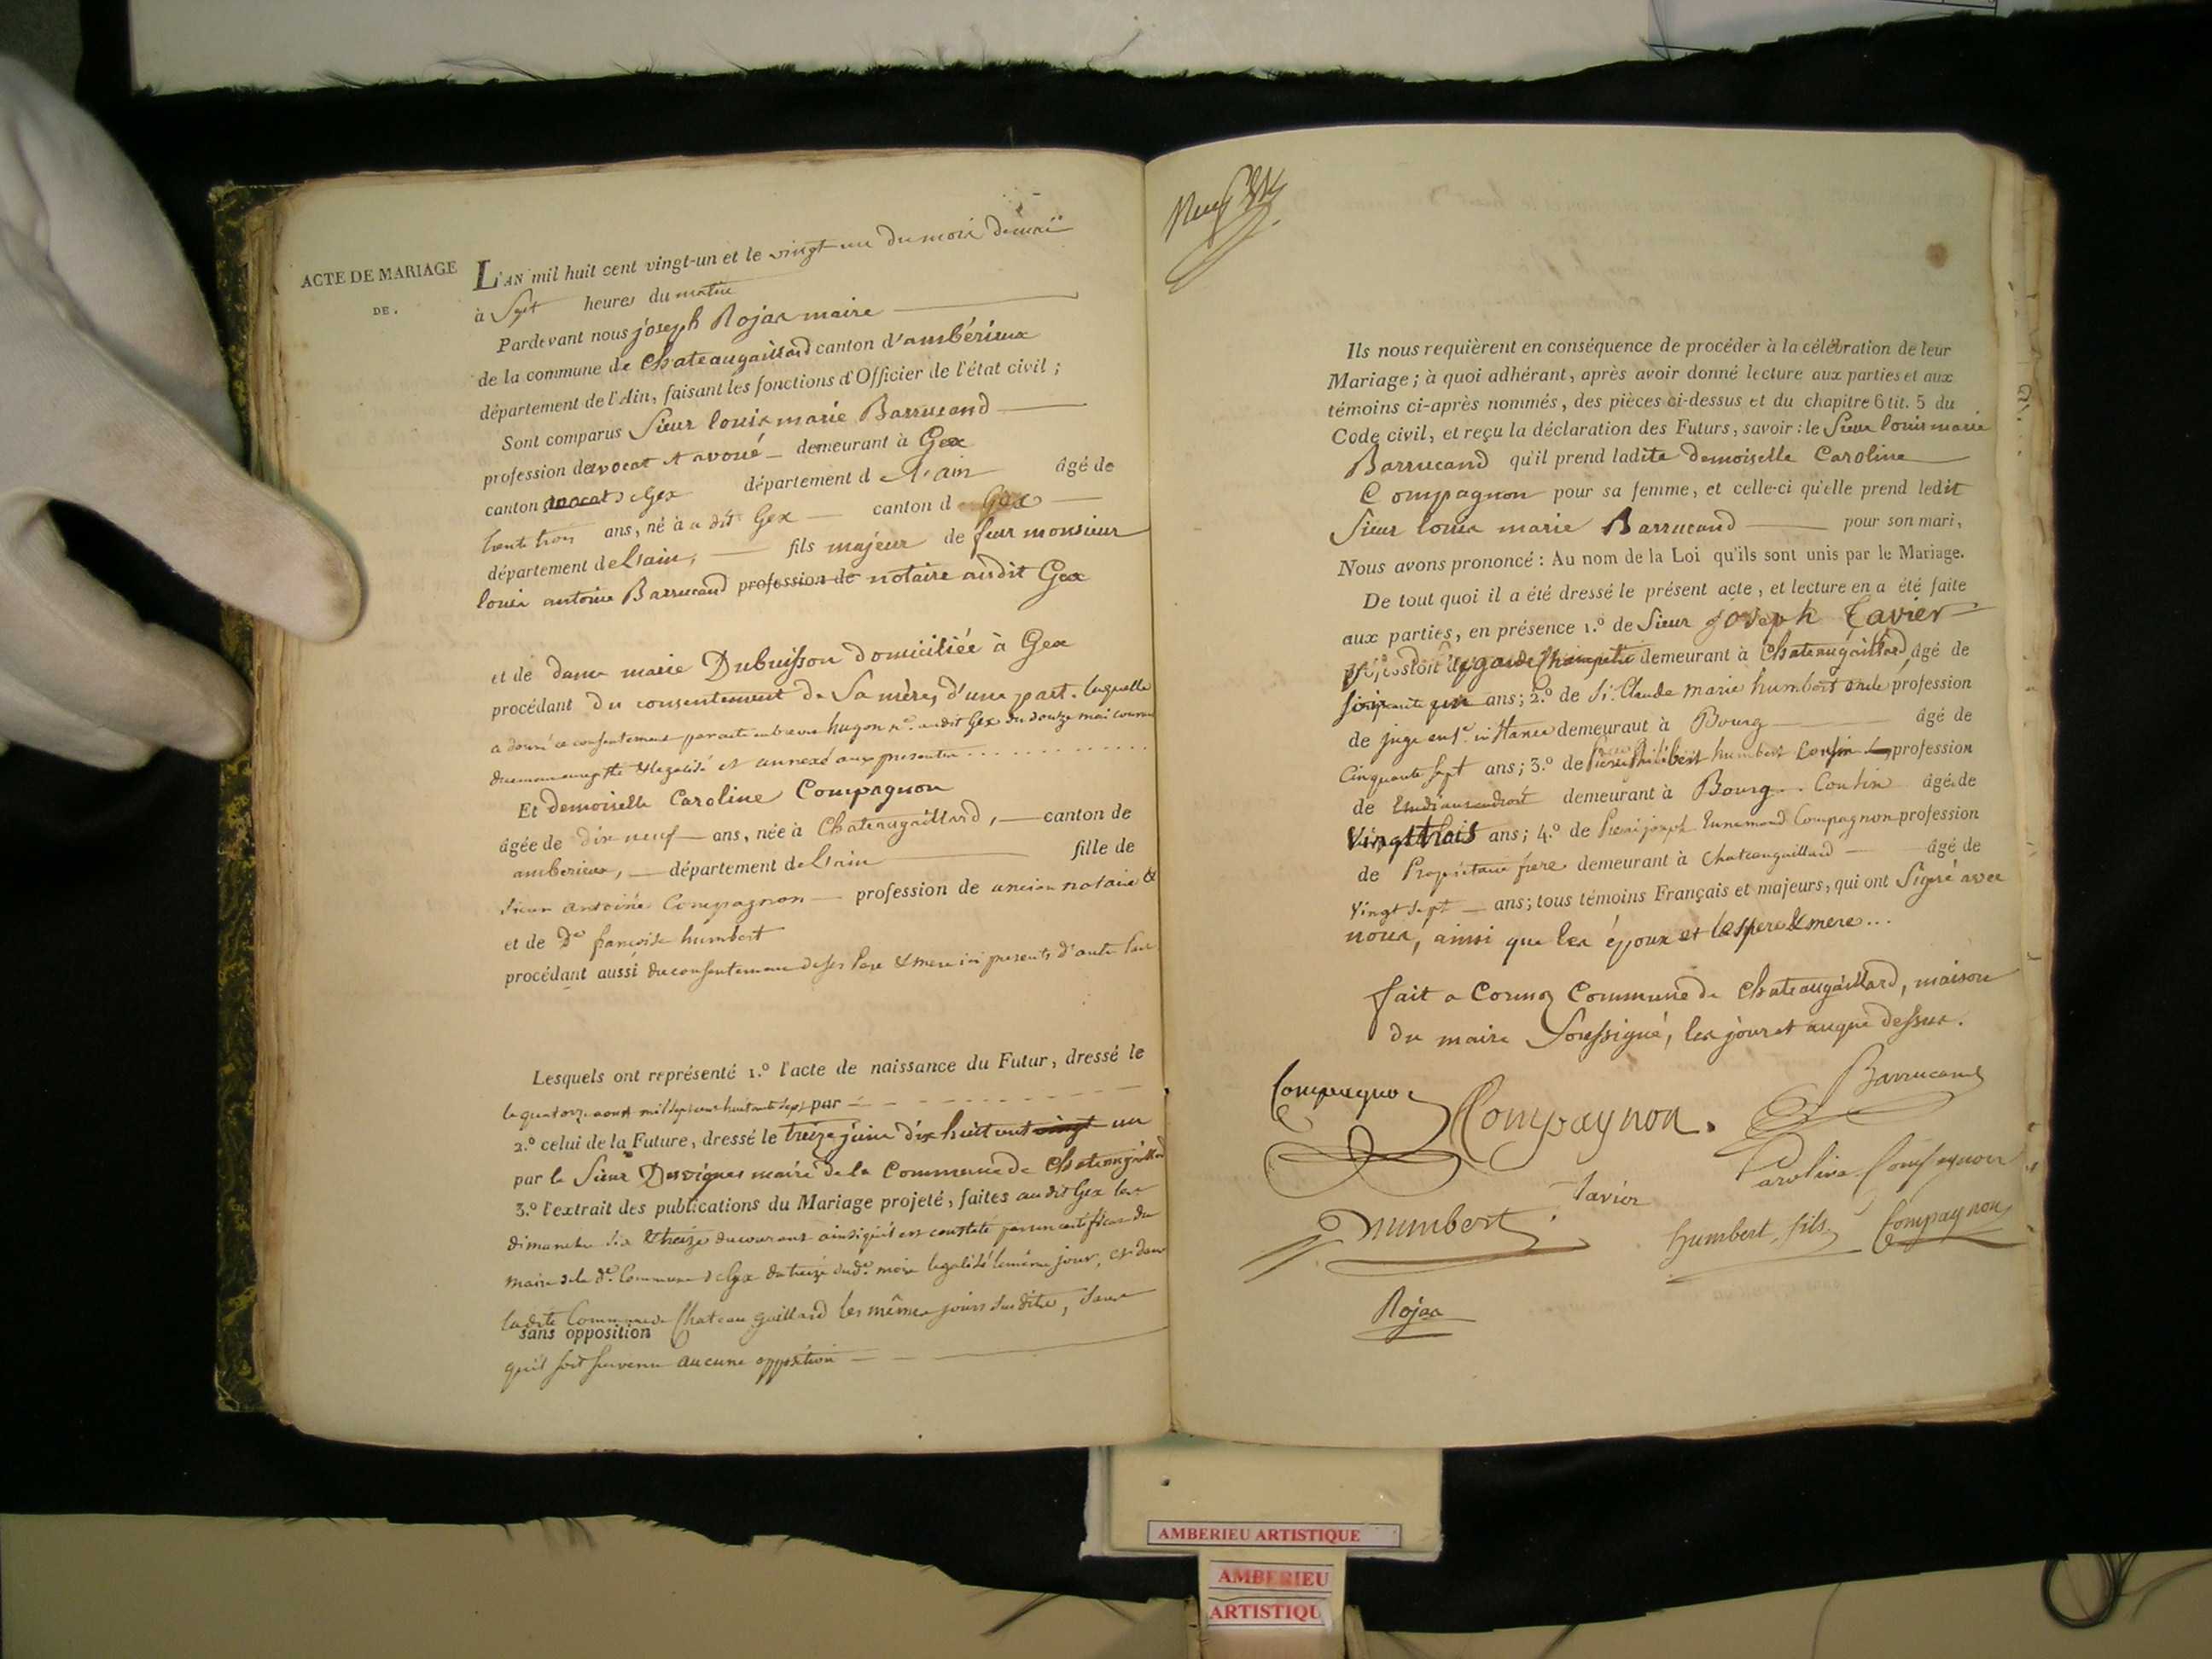 ACTE DE MARIAGE
DE.
L'AN mil huit cent vingt-un et le vingt un du mois de mai
à Sept heures du matin
Pardevant nous joseph Rojas maire
de la commune de Chateaugaillard canton d'ambérieux
département de l'Ain, faisant les fonctions d'Officier de l'état civil ;
Sont comparus Sieur louis marie Barrucand
profession de avocat et avoué demeurant à Gex
canton de Gex département d l'ain âgé de
trente trois ans, né à a dit Gex canton d Gex
département de l'ain, fils majeur de feu monsieur
louis antoine Barrucand profession de notaire audit Gex
et de dame marie Dubuisson domiciliée à Gex
procédant du consentement de Sa mère, d'une part. laquelle
a donné ce consentement par acte hugon audit Gex du douze mai courant
legalisé et annexé aux presentes
Et demoiselle Caroline Compagnon
âgée de dix neuf ans, née à Chateaugaillard, canton de
amberieux, département de l'ain fille de
Sieur antoine Compagnon profession de ancien notaire &
et de De françoise humbert
procédant aussi du consentement de ses Pere & mere ici presents d'autre part
Lesquels ont représenté 1.º l'acte de naissance du Futur, dressé le
le quatorze aoust mil sept cent huitante sept par
2.º celui de la Future, dressé le treize juin dix huit cent vingt un
par le Sieur Desvignes maire de la Commune de Chateaugaillard
3.º l'extrait des publications du Mariage projeté, faites audit Gex les
dimanche six & treize du courant ainsi qu'il est constaté par un certificat du
maire de la de. Commune de Gex du treize dud. mois legalisé le même jour, et dans
ladite Commune de Chateau gaillard les mêmes jours susdits, sans
sans opposition
qu'il soit survenu aucune opposition
Ils nous requièrent en conséquence de procéder à la célébration de leur
Mariage ; à quoi adhérant, après avoir donné lecture aux parties et aux
témoins ci-après nommés, des pièces ci-dessus et du chapitre 6 tit. 5 du
Code civil, et reçu la déclaration des Futurs, savoir : le Sieur louis marie
Barrucand qu'il prend ladite demoiselle Caroline
Compagnon pour sa femme, et celle-ci qu'elle prend ledit
Sieur louis marie Barrucand pour son mari,
Nous avons prononcé : Au nom de la Loi qu'ils sont unis par le Mariage.
De tout quoi il a été dressé le présent acte, et lecture en a été faite
aux parties, en présence 1.º de Sieur joseph tavier
profession de garde champetre demeurant à Chateaugaillard, âgé de
soixante un ans ; 2.º de Sr. Claude marie humbert oncle profession
de juge en 1e. instance demeurant à Bourg âgé de
Cinquante sept ans ; 3.º de Pierre philibert humbert Cousin profession
de Etudiant en droit demeurant à Bourg. Cousin âgé de
Vingt trois ans ; 4.º de Pierre joseph Ennemond Compagnon profession
de Propriétaire frere demeurant à Chateaugaillard âgé de
vingt sept ans ; tous témoins Français et majeurs, qui ont Signé avec
nous, ainsi que les époux et les pere & mere...
fait a Cormoz Commune de Chateaugaillard, maison
du maire Soussigné, les jour et an que dessus.
Compagnon
Compagnon.
Barrucand
Caroline Compagnon
tavier
humbert
humbert fils
Compagnon
Rojas
AMBERIEU ARTISTIQUE
AMBERIEU
ARTISTIQU